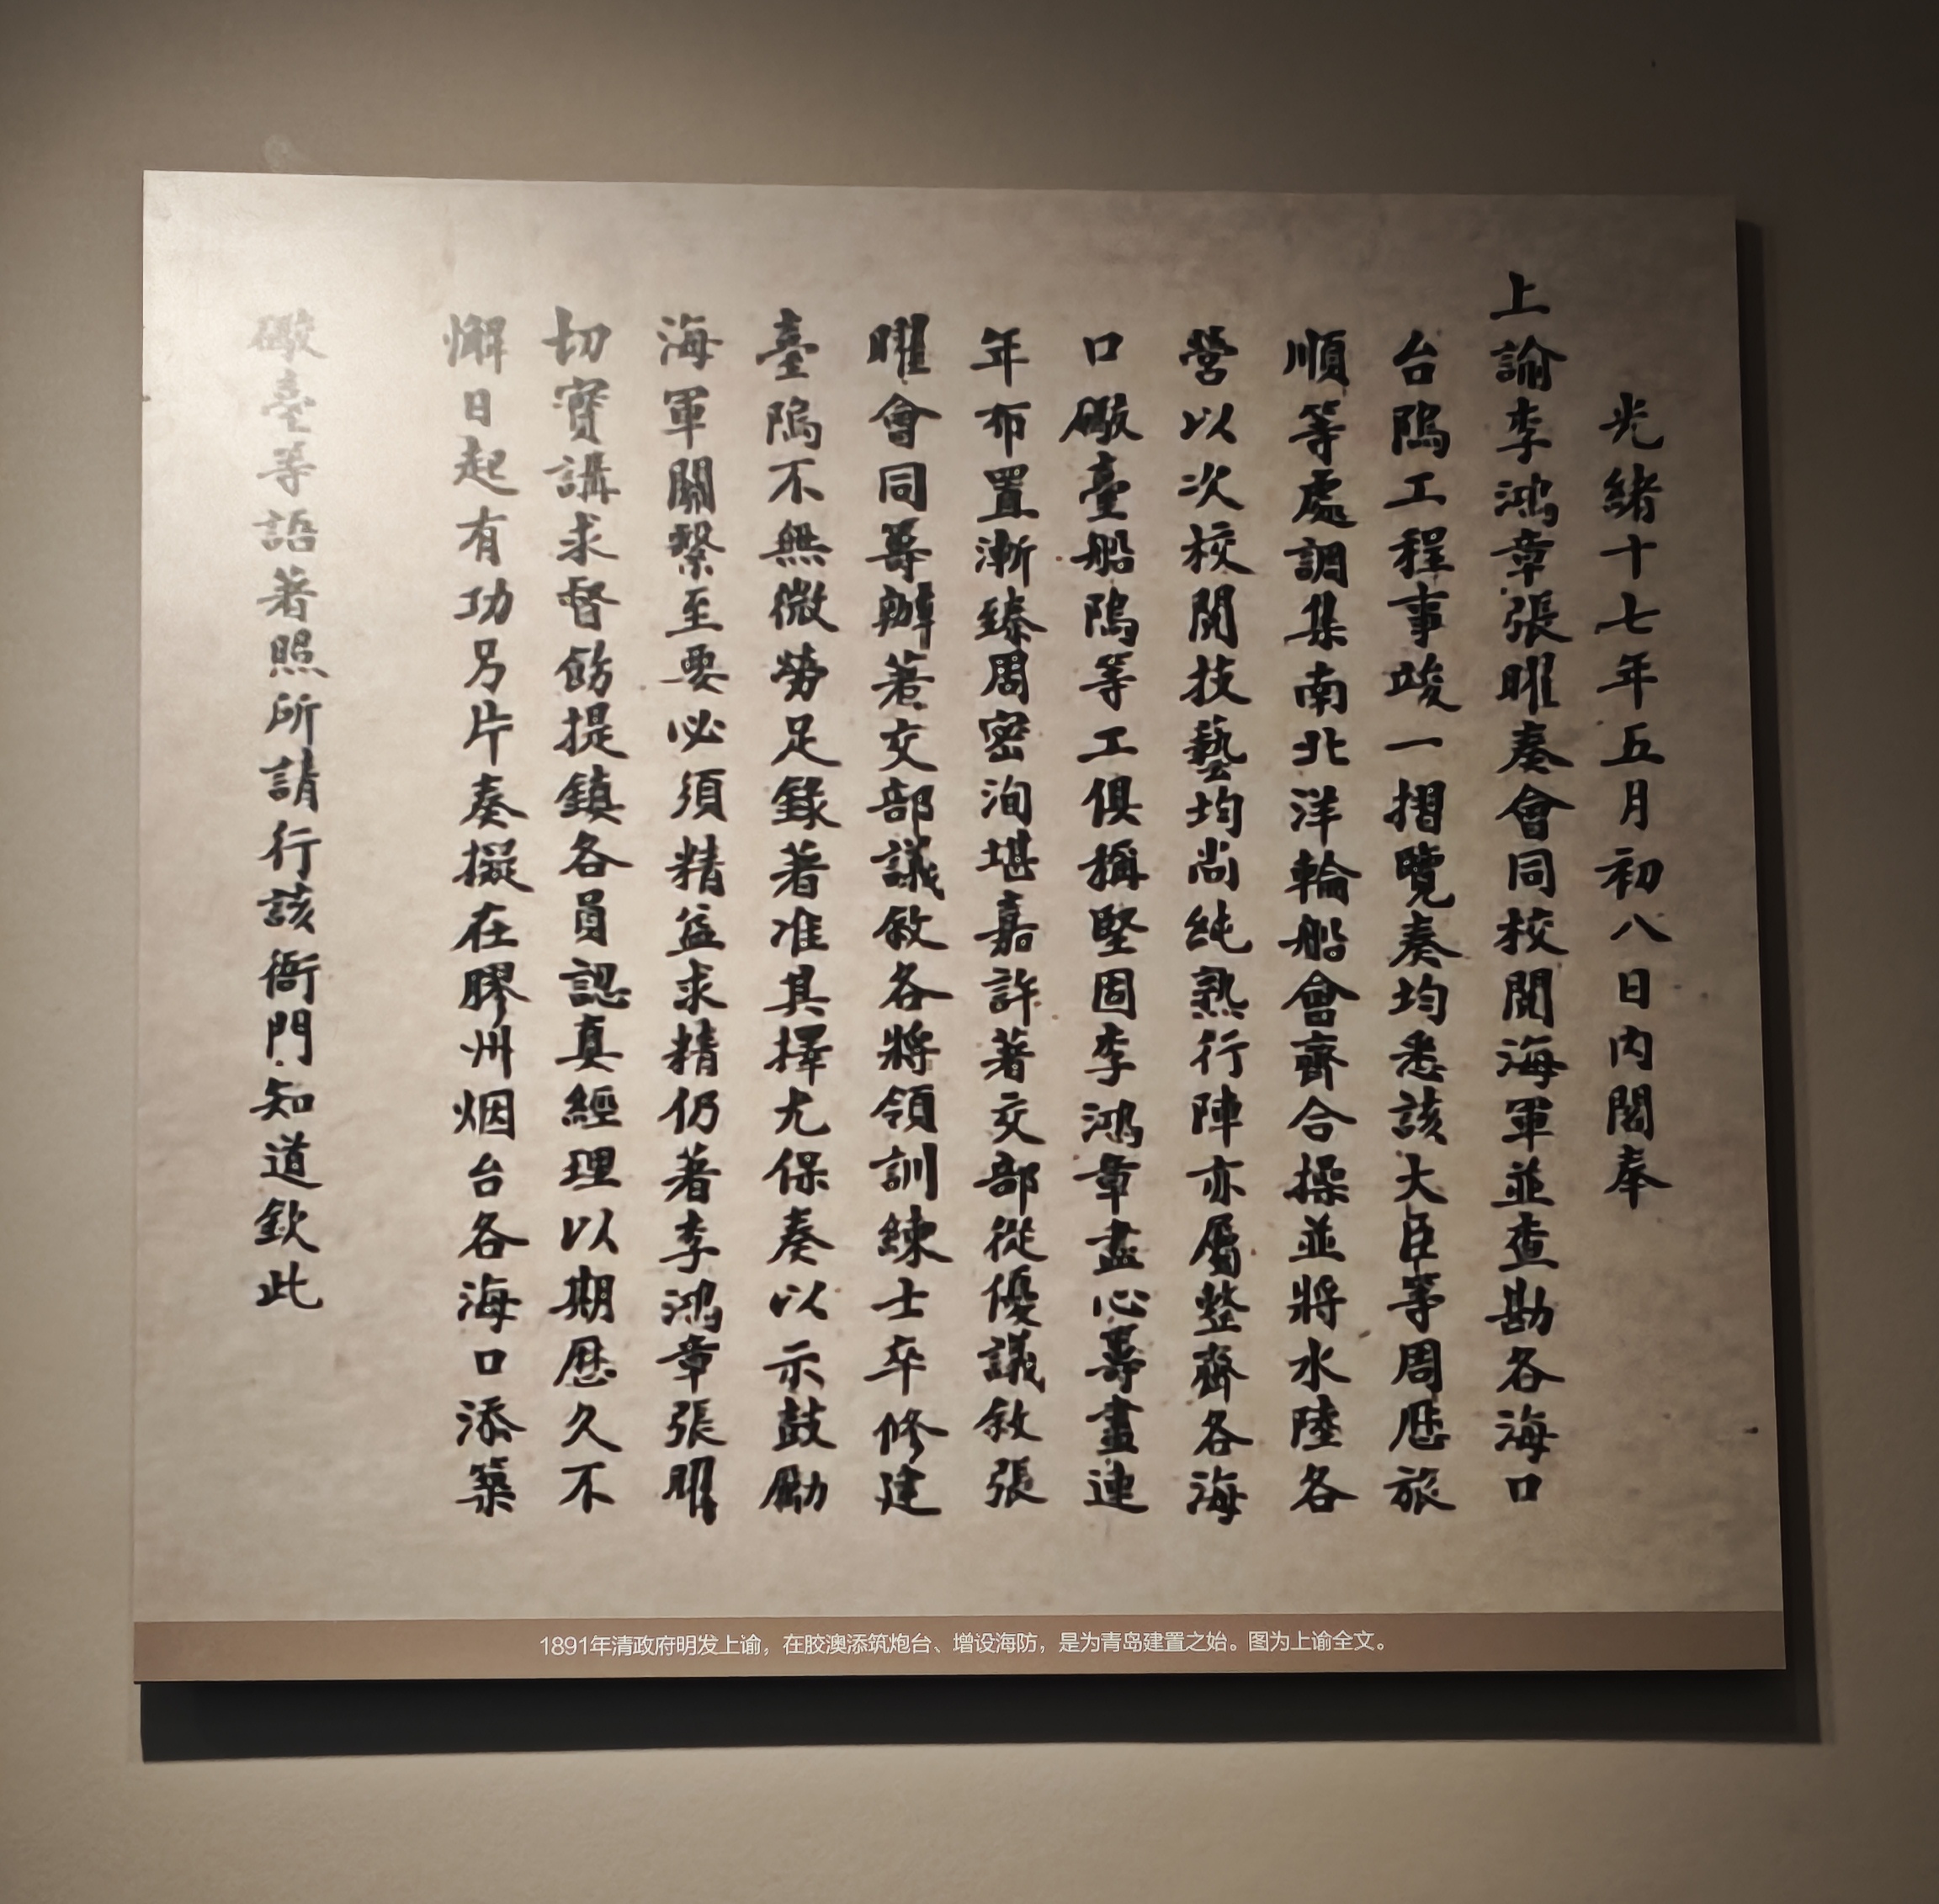 光緒十七年五月初八日內閣奉
上諭李鴻章張曜奏會同校閱海軍並查勘各海口
台隖工程事竣一摺覽奏均悉該大臣等周歷旅
順等處調集南北洋輪船會齊合操並將水陸各
營以次校閱技藝均尚純熟行陣亦屬整齊各海
口礮臺船隖等工俱稱堅固李鴻章盡心籌畫連
年布置漸臻周密洵堪嘉許著交部從優議敘張
曜會同籌辦著交部議敘各將領訓練士卒修建
臺隖不無微勞足錄著准其擇尤保奏以示鼓勵
海軍關繫至要必須精益求精仍著李鴻章張曜
切實講求督飭提鎮各員認真經理以期歷久不
懈日起有功另片奏擬在膠州烟台各海口添築
礮臺等語著照所請行該衙門知道欽此
1891年清政府明发上谕，在胶澳添筑炮台、增设海防，是为青岛建置之始。图为上谕全文。